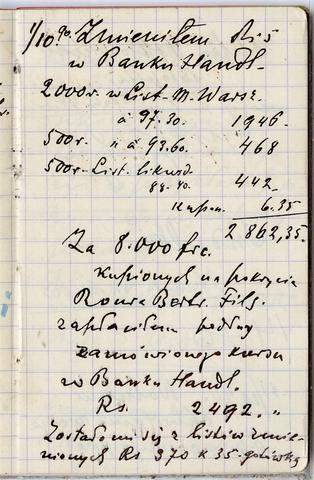 1/10 90. Zmieniłem Rs
w Banku Handl.
2000 r. w List. M. Warsz.
à 97.30. 1946.
500 r. " à 93.60. 468
500 r. List. likwid.
88.40. 442.
Kupon. 6.35
2 862,35.
Za 8.000 frc.
kupionych na pokrycie
Bertr. Fils.
zapłaciłem podług
zamówionego kursu
w Banku Handl.
Rs. 2492. "
Zostało mi się z listów zmie-
nionych Rs 370 k 35 gotówką